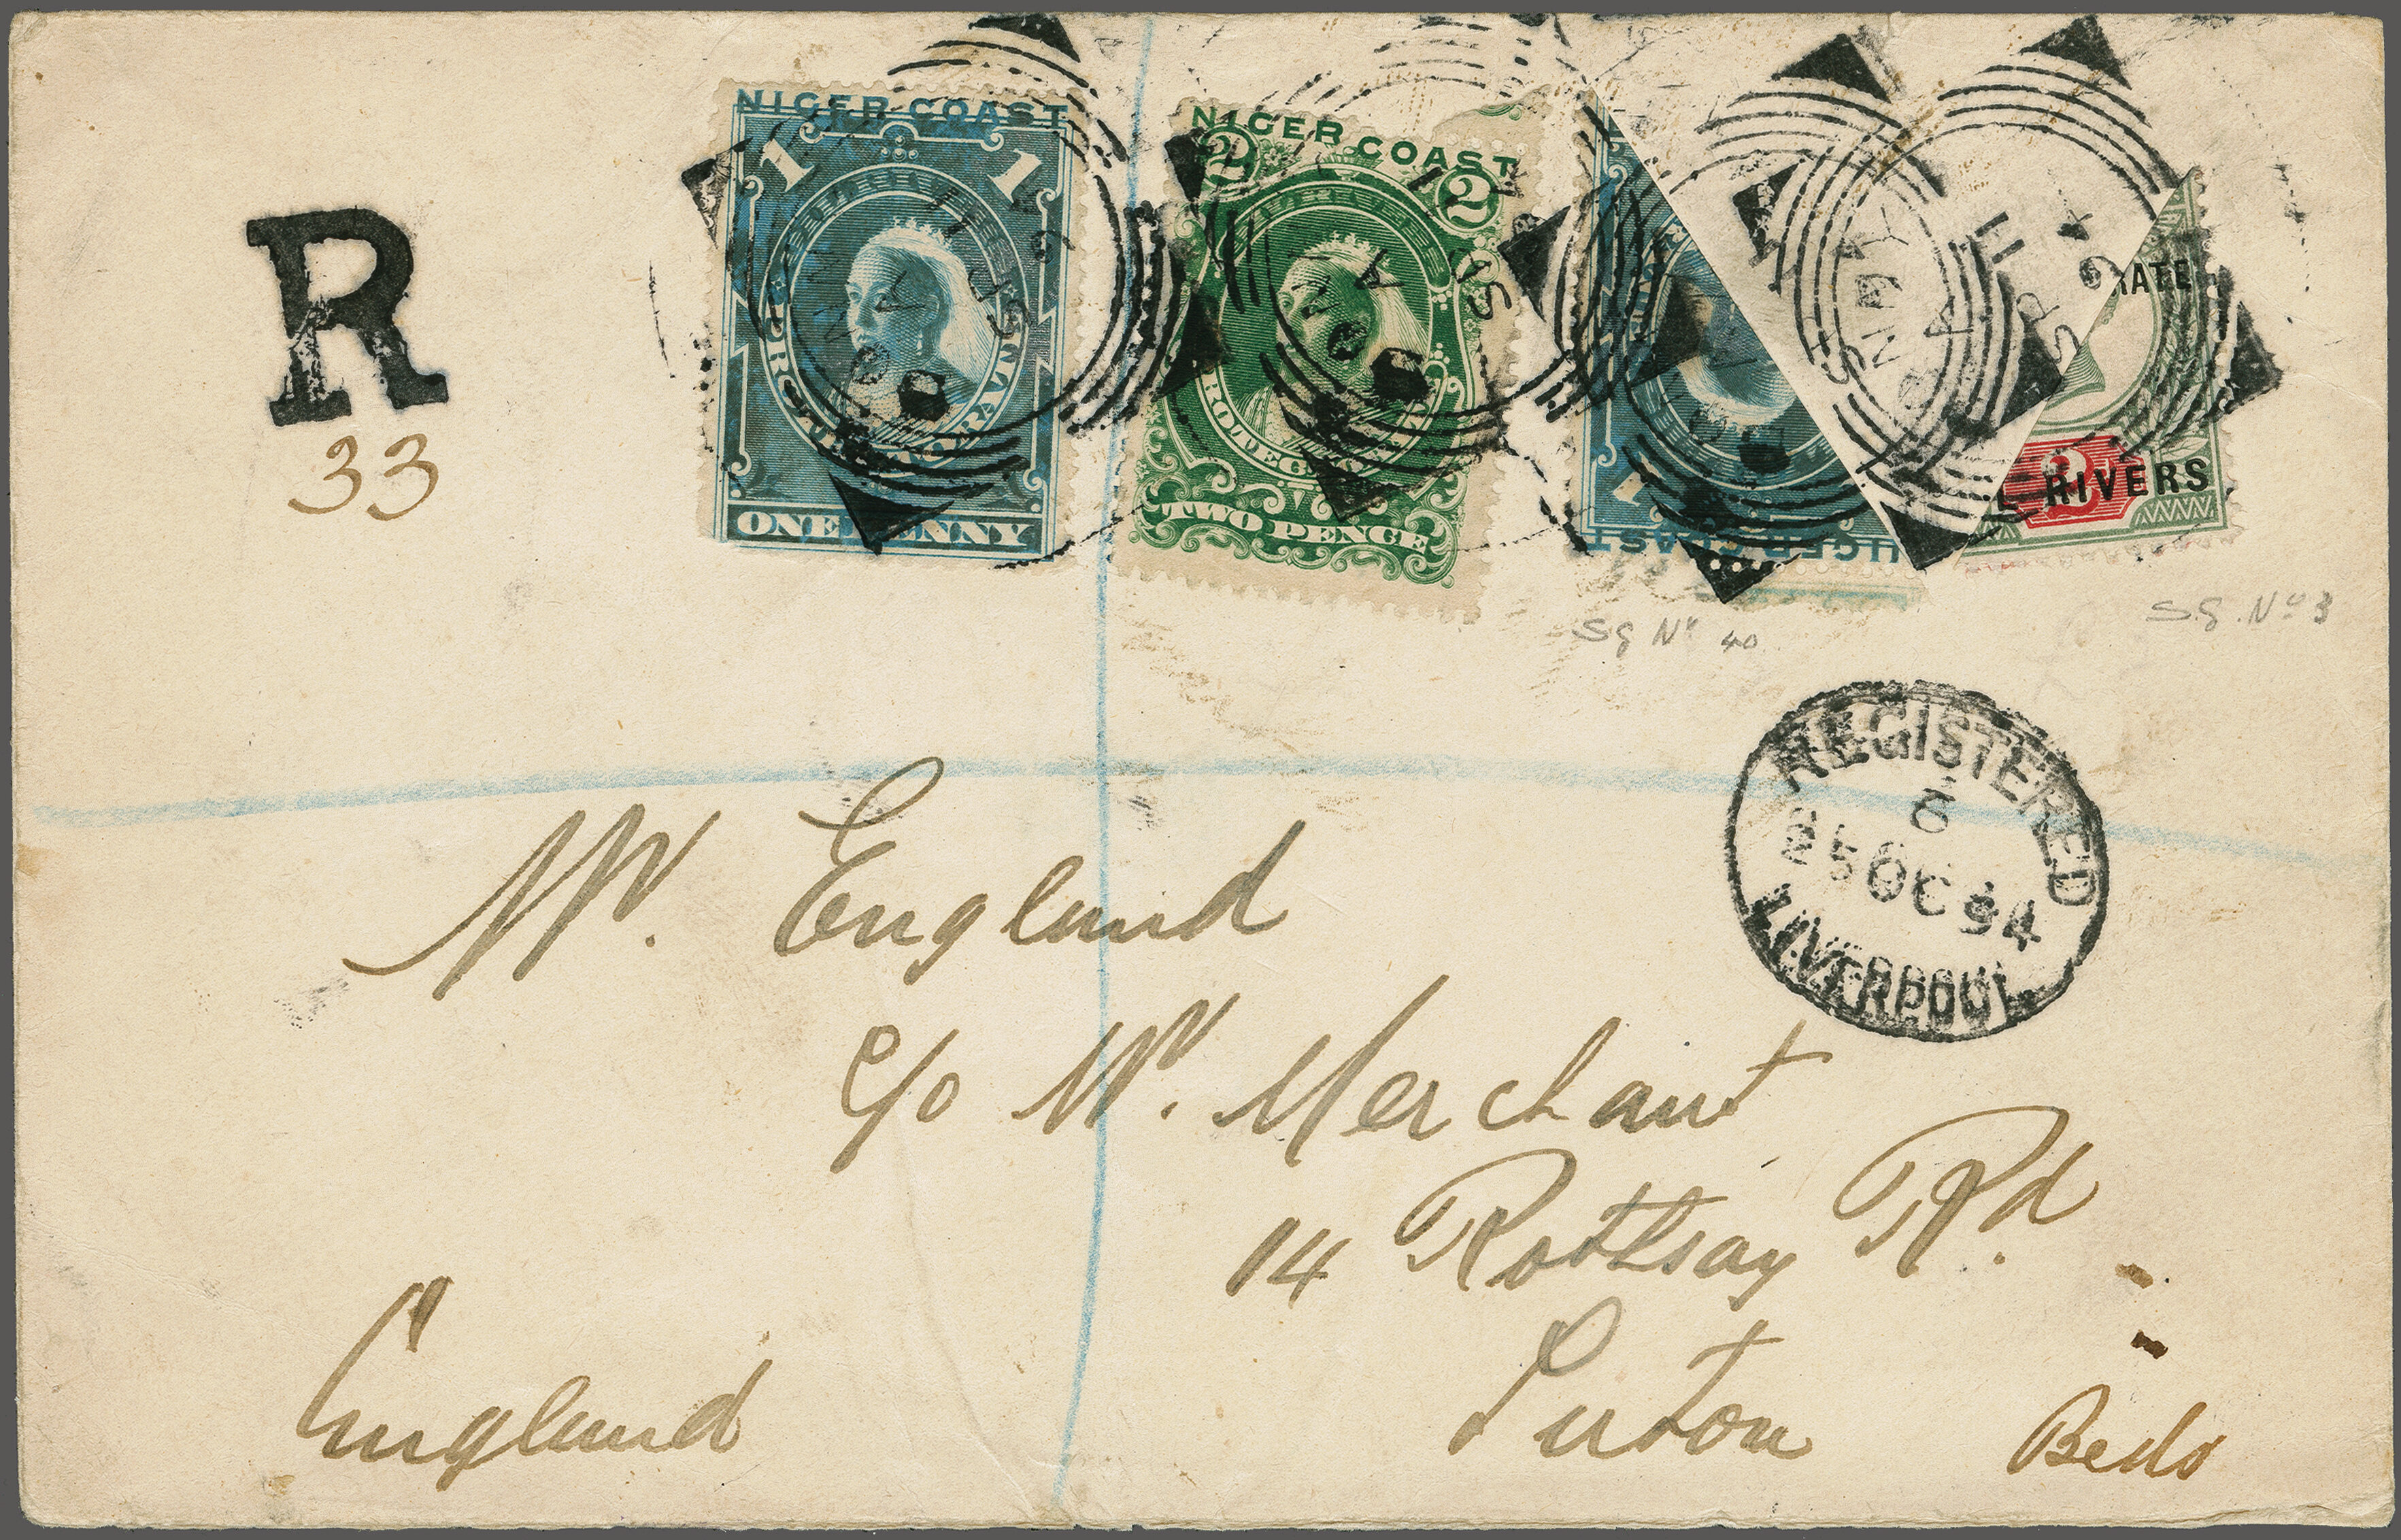 NIGER COAST
1 1
PROTECTORATE
ONE PENNY
NIGER COAST
2 2
PROTECTORATE
TWO PENCE
1
NIGER COAST
RATE
2
RIVERS
BONNY
A
SP 11
94
R
33
SG No 40
S.G. No 3
REGISTERED
25 OC 94
LIVERPOOL
Mr. England
c/o Mr. Merchant
14 Rothsay Rd.
Luton
Beds
England